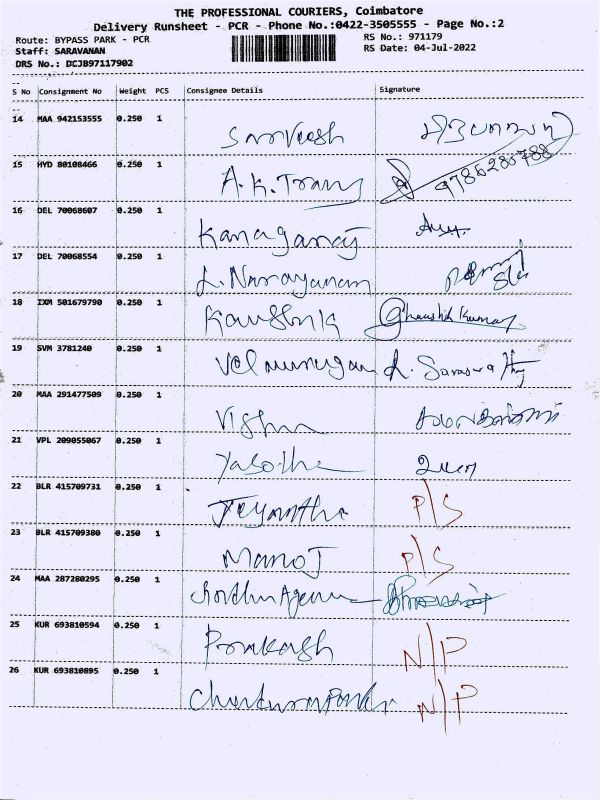 THE PROFESSIONAL COURIERS, Coimbatore
Delivery Runsheet - PCR - Phone No.:0422-3505555 - Page No.:2
Route: BYPASS PARK - PCR RS No.: 971179
Staff: SARAVANAN RS Date: 04-Jul-2022
DRS No.: DCJB97117902
S No Consignment No Weight PCS Consignee Details Signature
14 MAA 942153555 0.250 1 Sarveesh
15 HYD 80108466 0.250 1 A.K.Trans 9786286788
16 DEL 70068607 0.250 1 Kanagaraj
17 DEL 70068554 0.250 1 L.Narayanan
18 IXM 501679790 0.250 1 Kaushik Ghaushik Kumar
19 SVM 3781240 0.250 1 Velmurugan
20 MAA 291477509 0.250 1 Vishnu
21 VPL 209055067 0.250 1 Yasotha உமா
22 BLR 415709731 0.250 1 Jeyantha P/S
23 BLR 415709380 0.250 1 Manoj P/S
24 MAA 287280295 0.250 1
25 KUR 693810594 0.250 1 Prakash N/P
26 KUR 693810895 0.250 1 N/P